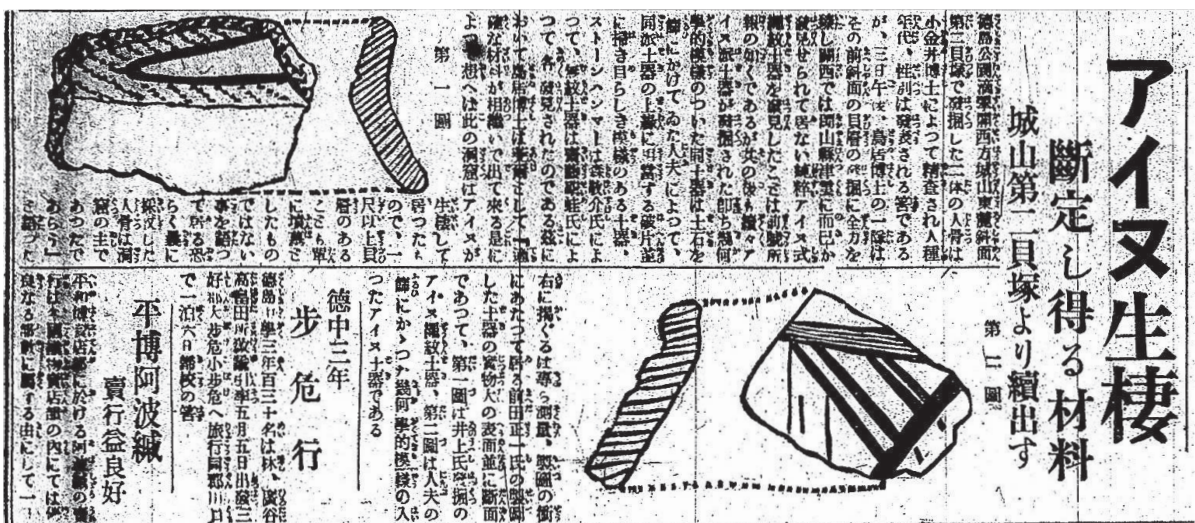 アイヌ生棲
斷定し得る材料
城山第二貝塚より續出す
第二圖
徳島公園滴翠閣西方城山東麓斜面
第二貝塚で發掘した二体の人骨は
小金井博士によつて精査され人種
年代、性別は發表される筈である
が、三日午後、鳥居博士の一隊は
その前斜面の貝層の發掘に全力を
し關西では岡山縣津雲に而已か
發見せられて居ない純粹アイヌ式
繩紋土器を發見したことは前號所
報の如くであるが其の後も續々ア
イヌ派土器が發掘された卽ち幾何
學的模様のついた同土器は土石を
篩にかけてゐた人夫によつて、
同派土器の上縁に相當する破片並
に掃き目らしき模様のある土器、
ストーンハンマーは森敬介氏によ
つて、無紋土器は 氏によ
つて、各發見されたのである玆に
おいて鳥居博士は として『適
確な材料が相繼いで出て來る是に
よつて想へば此の洞窟はアイヌが
第一圖
生棲して
居つたも
ので、一
尺以上貝
層のある
ことも單
に
したもの
ではない
事を語つ
て居る恐
らく曩に
採收した
人骨は洞
窟の主で
あつたで
あらう』
と語つた
右に掲ぐるは専ら測量、製圖の衝
にあたつて居る前田正一氏の
した土器の實物大の表面並に斷面
であつて、第一圖は井上氏發掘の
アイヌ繩紋土器、第二圖は人夫の
篩にかゝつた幾何學的模様の入
つたアイヌ土器である
徳中三年
步危行
徳島中學三年百三十名は林、廣谷
高畠田所教諭引率五月五日出發三
好郡大步危小步危へ旅行同郡川口
で一泊六日歸校の筈
平博阿波縅
賣行益良好
平和博賣店部に於ける阿波縅の賣
行は本國織物賣店部の內にては優
良なる部類に屬する由にして一